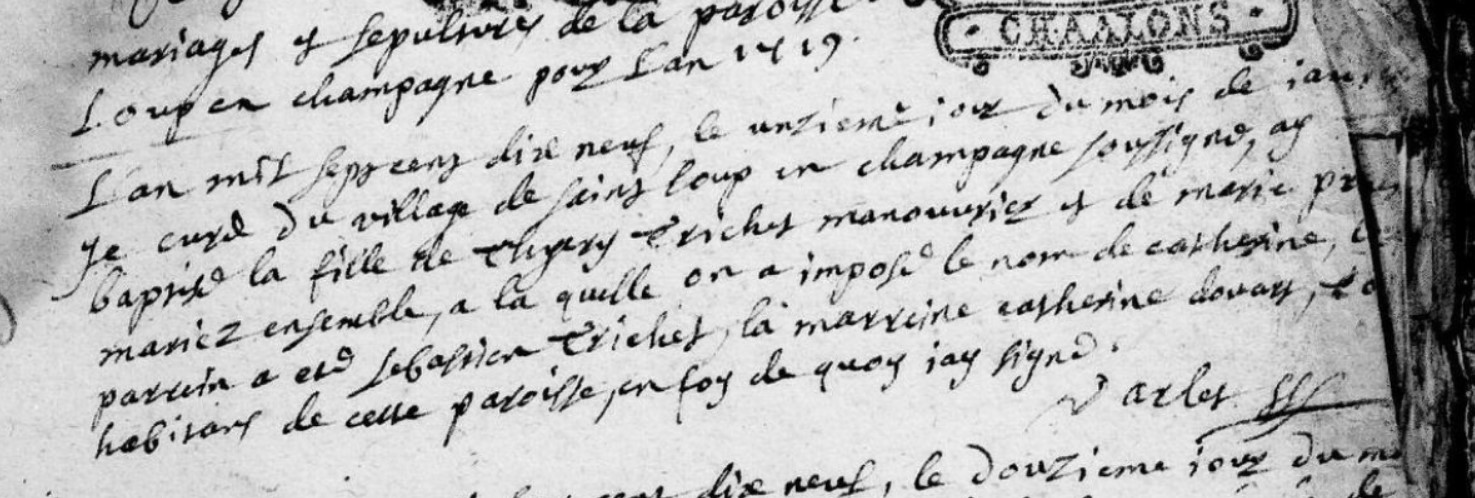 mariages et sepultures de la paroisse
CHAALONS
Loup en champagne pour Lan 1719.
L'an mil sept cent dix neuf, le unzieme jour du mois de jan
Je curé du village de saint loup en champagne soussigné, ay
baptisé la fille de Thyery Trichet manouvrier et de marie
mariez ensemble, a la quelle on a imposé le nom de catherine,
parrein a eté sebastien Trichet, la marreine catherine douart,
habitans de cette paroisse, en foy de quoy jay signé.
Varlet
cent dix neuf, le douzieme jour du